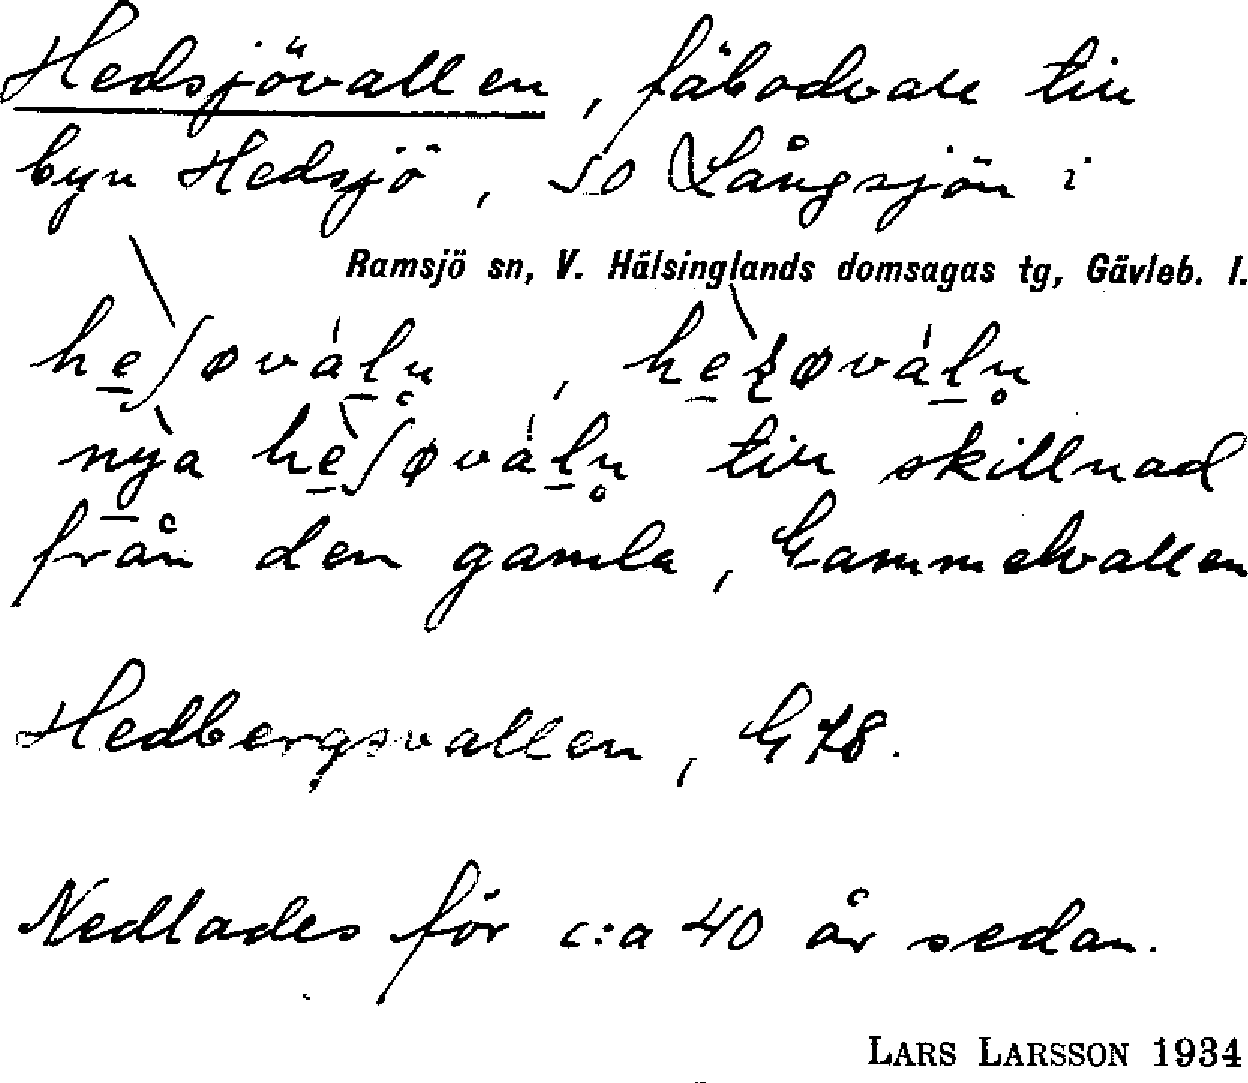 Hedsjövallen, fäbodvall till
byn Hedsjö, SO Långsjön i
Ramsjö sn, V. Hälsinglands domsagas tg, Gävleb. l.
nya till skillnad
från den gamla, Gammelvallen
Hedbergsvallen, G 78.
Nedlades för c:a 40 år sedan.
LARS LARSSON 1934